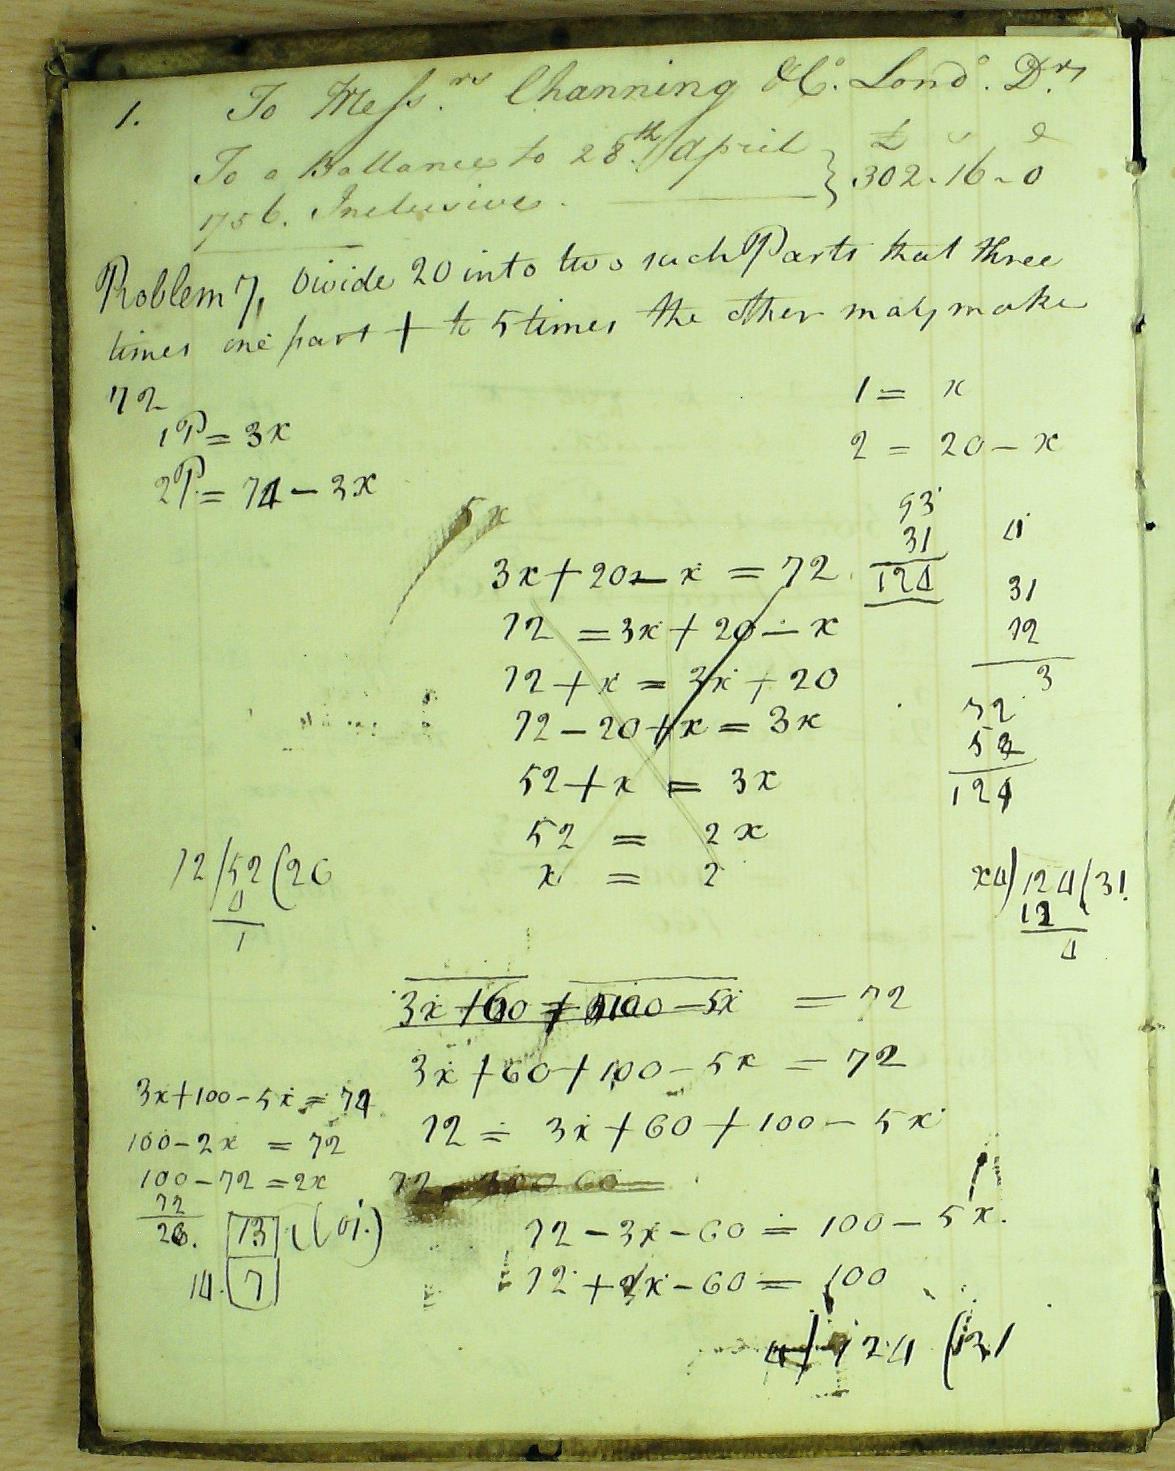 1. To Mess.rs Channing & Co. Lond. Drs
To a Ballance to 28th April
1756. Inclusive.
£ s d
302-16-0
Problem 7, Divide 20 into two such Parts that three
times one part + to 5 times the other may make
72
1 = x
1P = 3x
2 = 20 - x
2P = 74 - 3x
5x
93
31
124
4
3x + 20 - x = 72
31
12
3
72 = 3x + 20 - x
72 + x = 3x + 20
72 - 20 + x = 3x
72
52
124
52 + x = 3x
52 = 2x
x = 2
12/52(26
4
1
x4)124(31
12
4
3x + 60 + 100 - 5x = 72
3x + 60 + 100 - 5x = 72
3x + 100 - 5x = 74
72 = 3x + 60 + 100 - 5x
100 - 2x = 72
100 - 72 = 2x
72
28.
13
14. 7
72 - 3x - 60 = 100 - 5x.
72 + 2x - 60 = 100
4)124(31